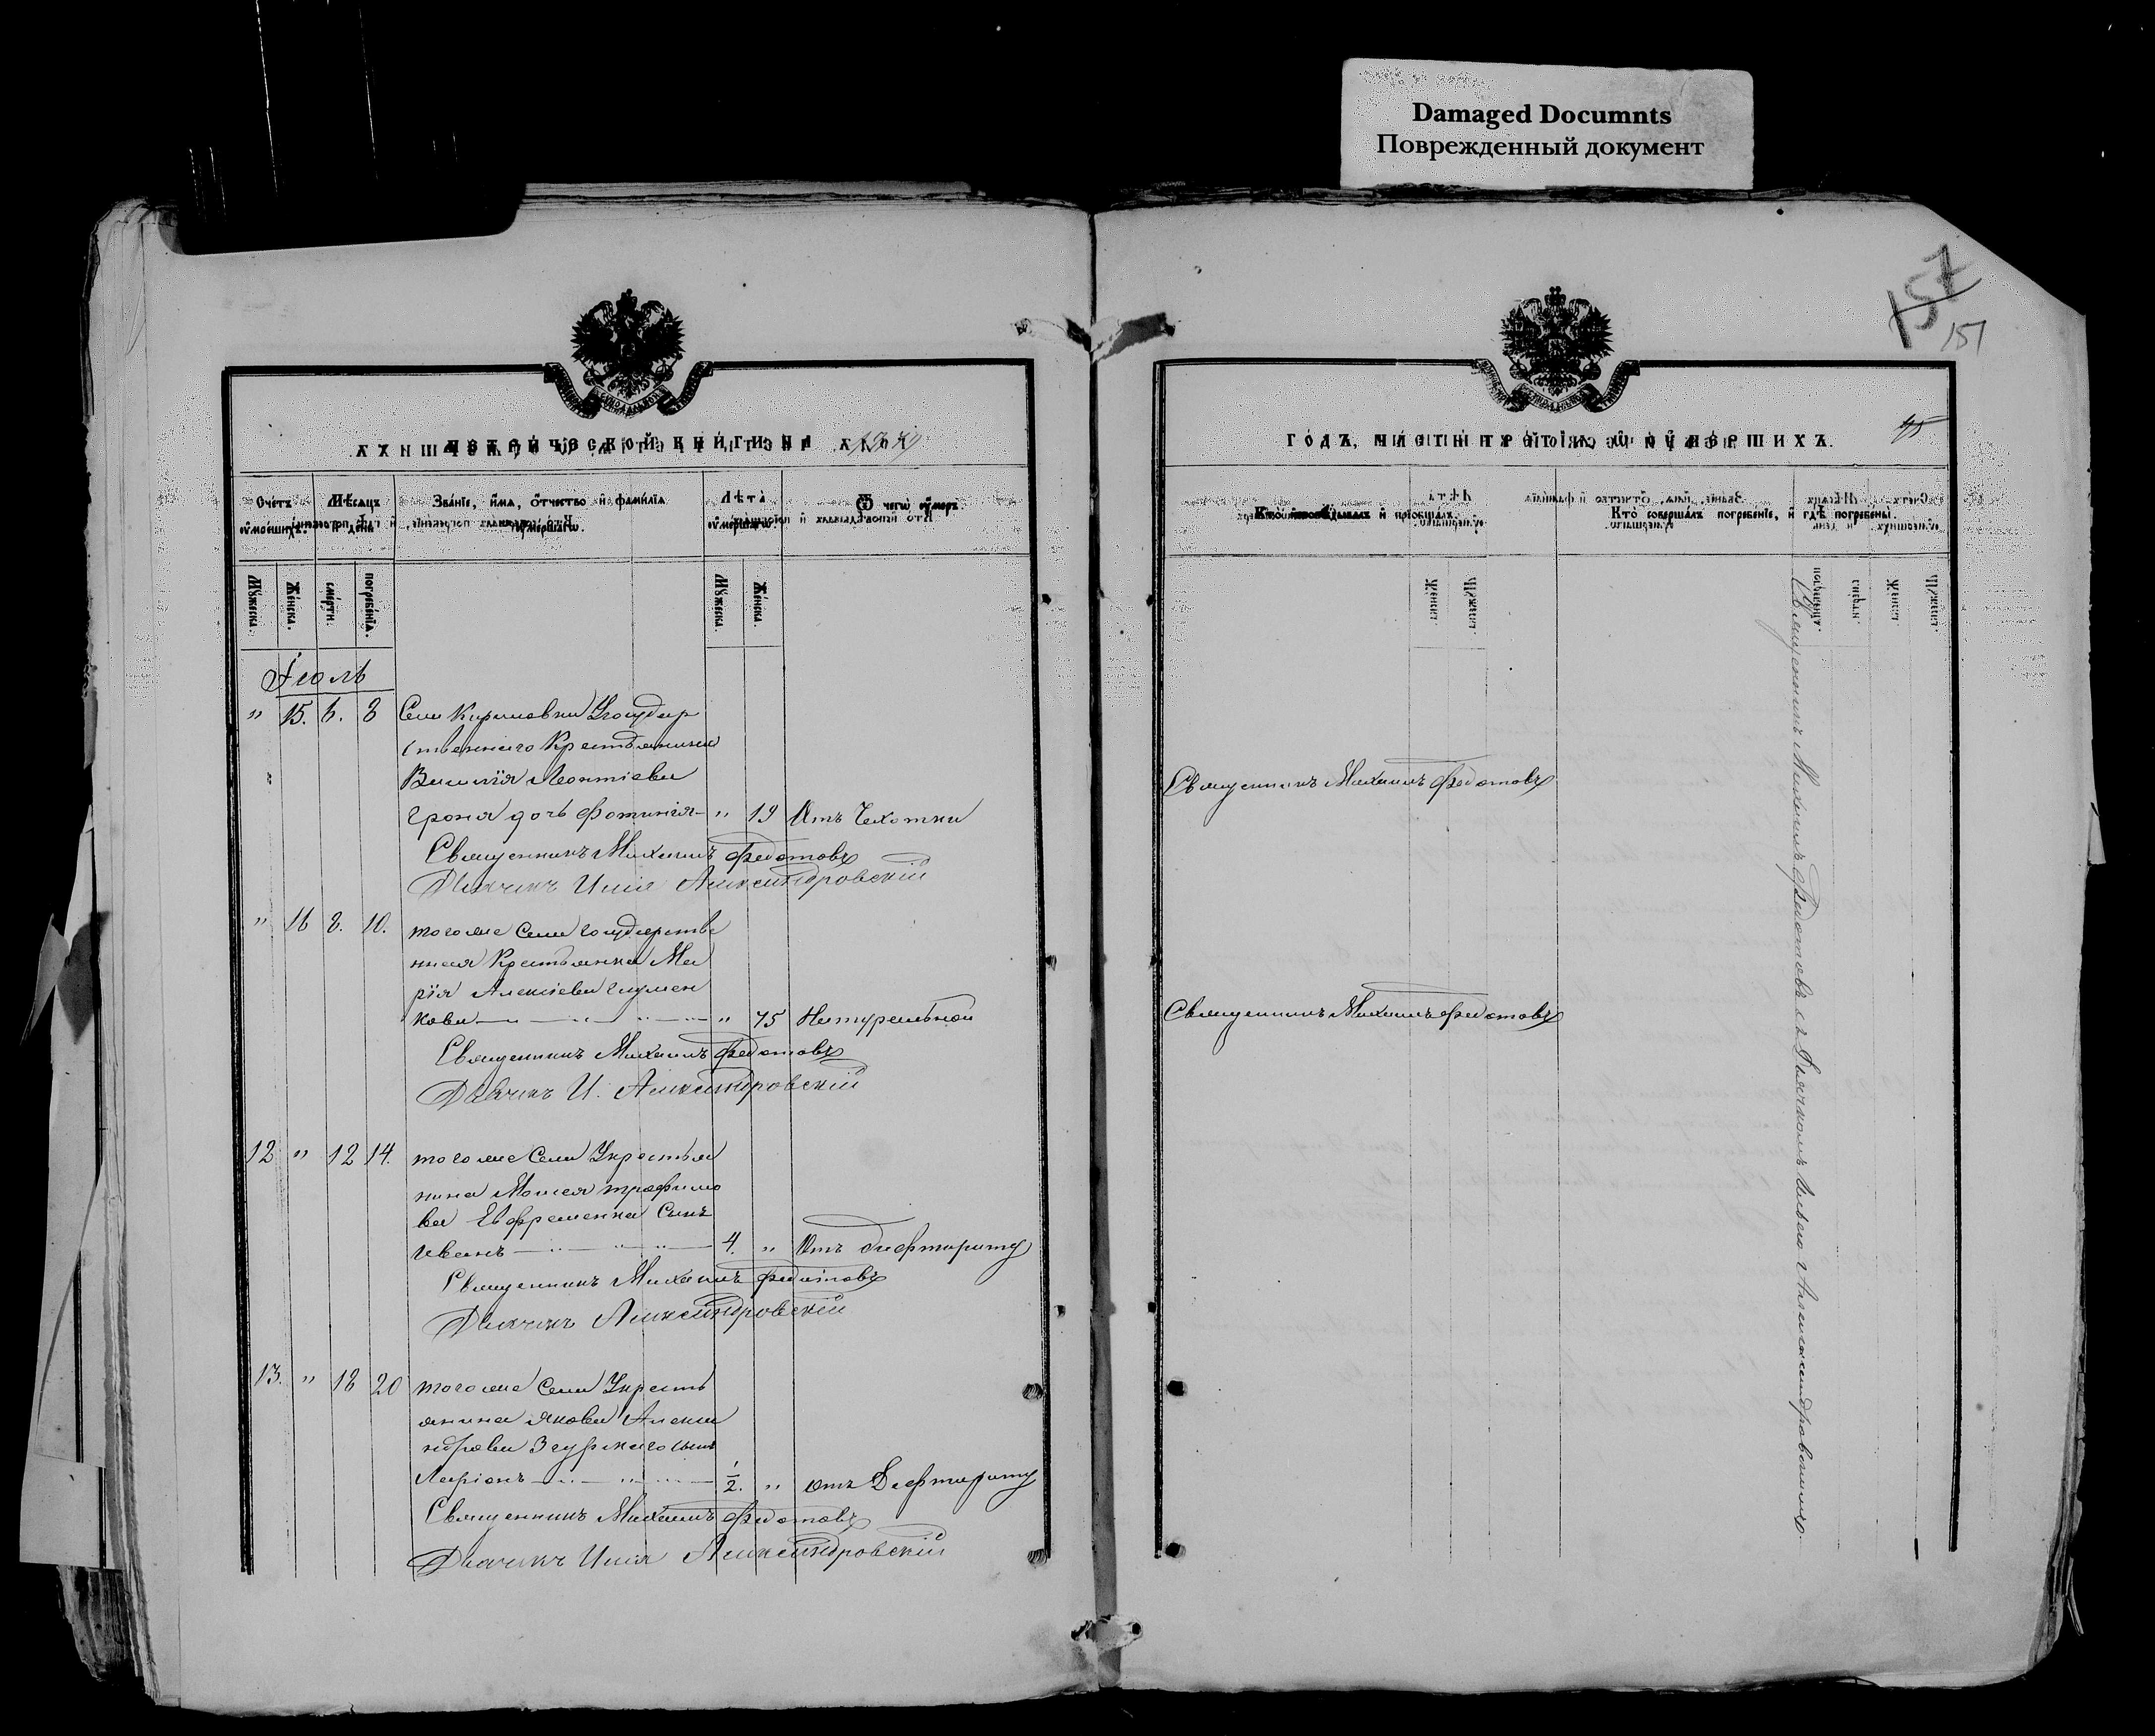 Damaged Documnts
Поврежденный документ
157
151
МЕТРИЧЕСКОЙ КНИГИ НА
Счетъ умершихъ.
Мѣсяцъ и день
Званіе, имя, отчество и фамилія умершаго.
Лѣта умершаго.
Ѿ чегѡ умеръ
Мужеска.
Женска.
смерти.
погребенія.
Мужеска.
Женска.
Іюль
" 15. 6. 8 Села
ственнаго Крестьянина
Василія Леонтіева
дочь Фотинія " 19 Отъ Чахотки
Священникъ Михаилъ Федотовъ
Дьячекъ Илія Александровскій
" 16 8. 10. того же Села государстве
нная Крестьянка Ма
рія Алексіева
кова " 75 Натуральной
Священникъ Михаилъ Федотовъ
Дьячекъ И. Александровскій
12 " 12 14. того же Села Крестья
нина Моисея Трофимо
ва Евфременка Сынъ
Иванъ 4. " Отъ Дифтериту
Священникъ Михаилъ Федотовъ
Дьячекъ Александровскій
13. " 18 20 того же Села Кресть
янина Якова Алекса
ндрова Згурскаго сынъ
Ларіонъ 1/2. " отъ Дифтериту
Священникъ Михаилъ Федотовъ
Дьячекъ Илія Александровскій
ГОДЪ, ЧАСТЬ ТРЕТІЯ, Ѡ УМЕРШИХЪ.
75
Кто исповѣдывалъ и пріобщалъ.
Кто совершалъ погребеніе, и гдѣ погребены.
Священникъ Михаилъ Федотовъ
Священникъ Михаилъ Федотовъ
Священникъ Михаилъ Федотовъ съ Дьячкомъ Иліею Александровскимъ